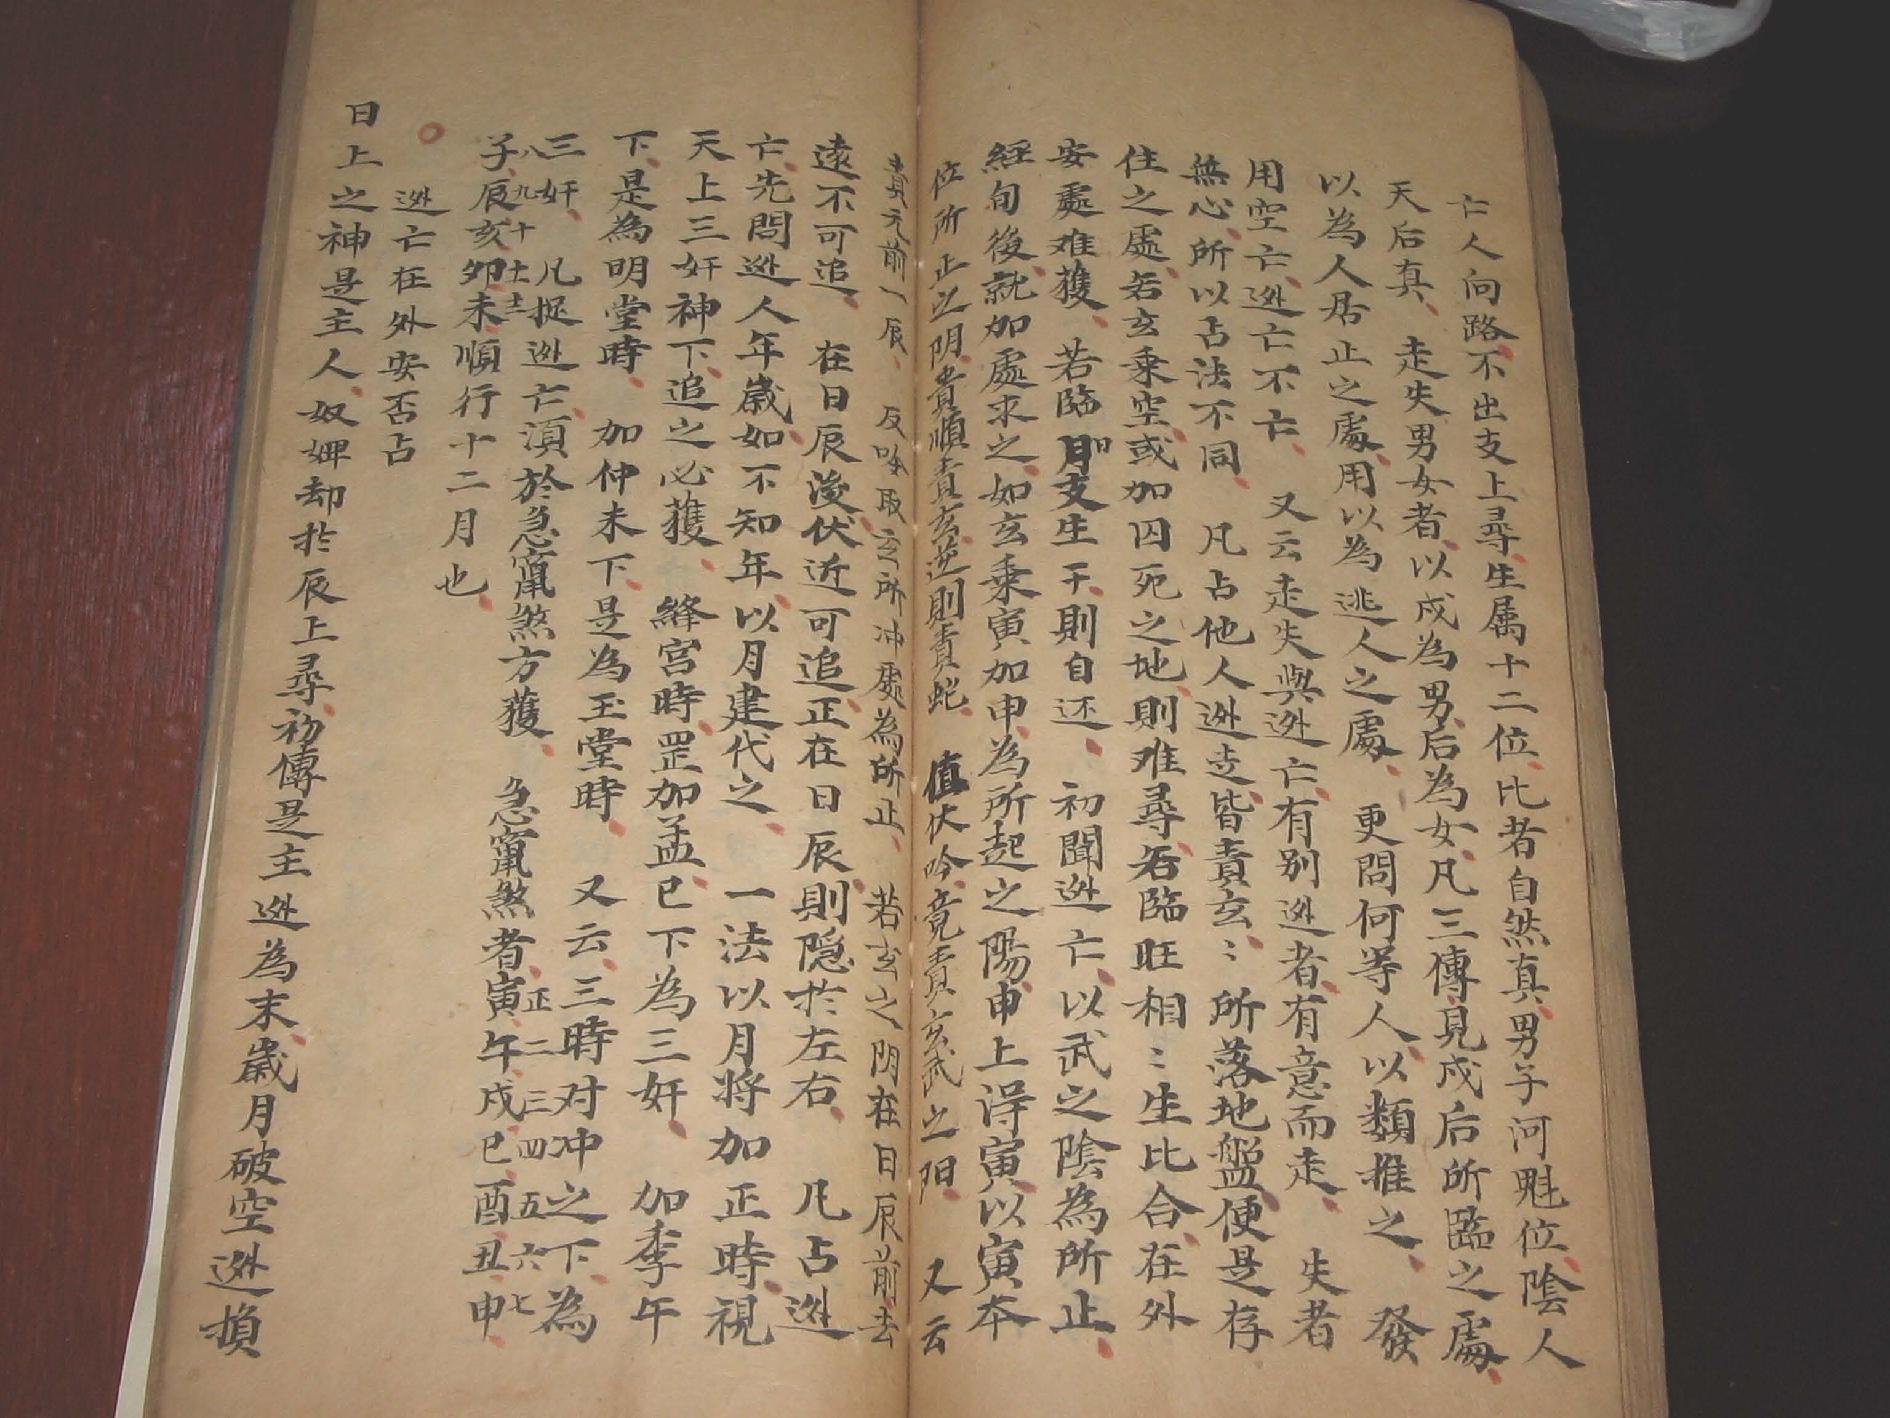 亡人向路不出支上尋生属十二位比者自然真男子河魁位陰人
天后真 走失男女者以戍為男后為女凡三傳見戍后所臨之處
以為人居止之處用以為逃人之處 更問何等人以類推之 發
用空亡逃亡不亡 又云走失與逃亡有别逃者有意而走 失者
無心所以占法不同 凡占他人逃走皆責玄〻所落地盤便是存
住之處若玄乗空或加囚死之地則难尋若臨旺相〻生比合在外
安處难獲 若臨日支生干則自还 初聞逃亡以武之陰為所止
經旬後就加處求之如玄乗寅加申為所起之陽申上得寅以寅本
位所止之阴貴順責玄逆則責蛇 值伏吟竟責玄武之阳 又云
責元前一辰 反吟取玄所冲處為所止 若玄之阴在日辰前去
遠不可追 在日辰後伏近可追正在日辰則隐於左右 凡占逃
亡先問逃人年歲如不知年以月建代之 一法以月将加正時視
天上三奸神下追之必獲 絳宫時罡加孟巳下為三奸 加季午
下是為明堂時 加仲未下是為玉堂時 又云三時对冲之下為
三奸 凡捉逃亡湏於急窜煞方獲 急窜煞者寅正午二戍三巳四酉五丑六申七
子八辰九亥十卯十一未十二順行十二月也
逃亡在外安否占
日上之神是主人奴婢却於辰上尋初傳是主逃為末歲月破空逃損